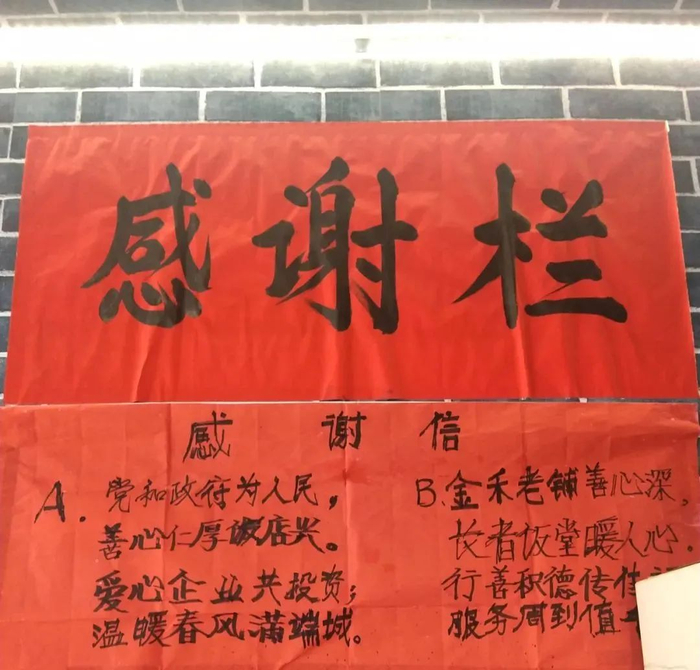 感谢栏
感谢信
A. 党和政府为人民，
善心仁厚饭店兴。
爱心企业共投资；
温暖春风满端城。
B. 金禾老铺善心深，
长者饭堂暖人心.
行善积德传佳
服务周到值